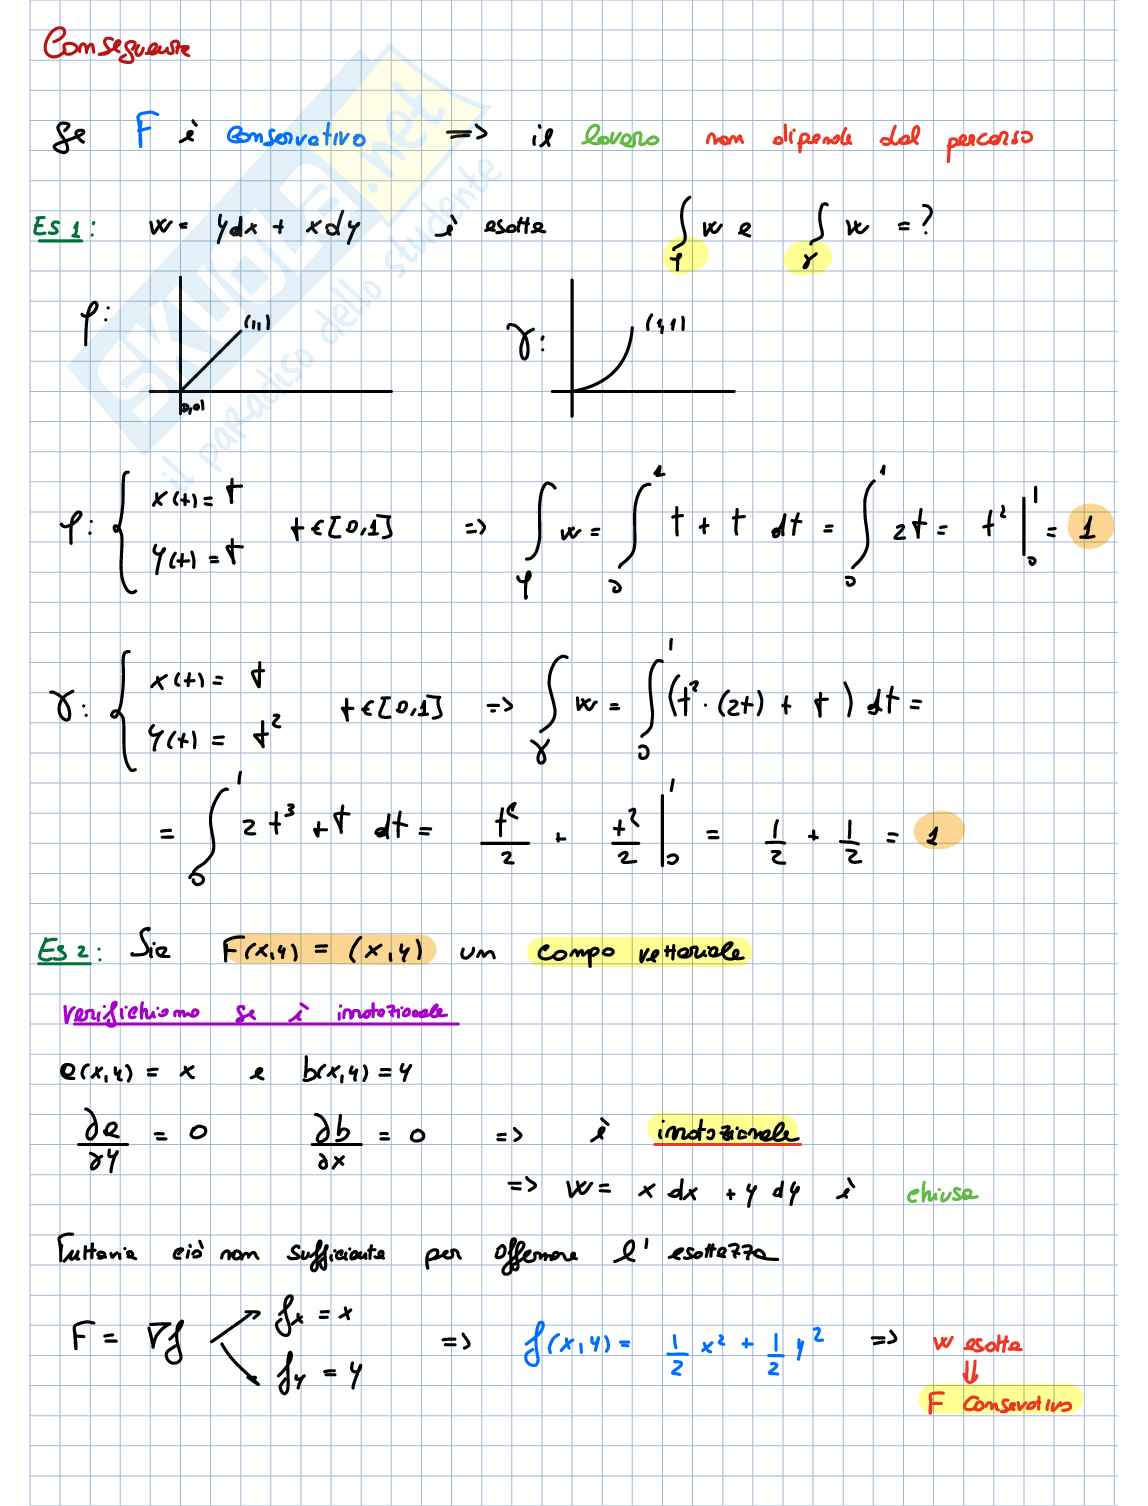 Conseguenze
Se F è conservativo => il lavoro non dipende dal percorso
Es 1: w = ydx + xdy è esatta ∫φ w e ∫γ w = ?
φ: (1,1) (0,0)
γ: (1,1)
φ: { x(t) = t y(t) = t t ∈ [0,1] => ∫φ w = ∫₀¹ t + t dt = ∫₀¹ 2t = t² |₀¹ = 1
γ: { x(t) = t y(t) = t² t ∈ [0,1] => ∫γ w = ∫₀¹ (t² · (2t) + t) dt =
= ∫₀¹ 2t³ + t dt = t⁴/2 + t²/2 |₀¹ = 1/2 + 1/2 = 1
Es 2: Sia F(x,y) = (x,y) un campo vettoriale
Verifichiamo se è irrotazionale
a(x,y) = x e b(x,y) = y
∂a/∂y = 0 ∂b/∂x = 0 => è irrotazionale
=> w = x dx + y dy è chiusa
Tuttavia ciò non sufficiente per affermare l'esattezza
F = ∇f fx = x fy = y => f(x,y) = 1/2 x² + 1/2 y² => w esatta
⇓
F conservativo
SKUOLA.net
il paradiso dello studente